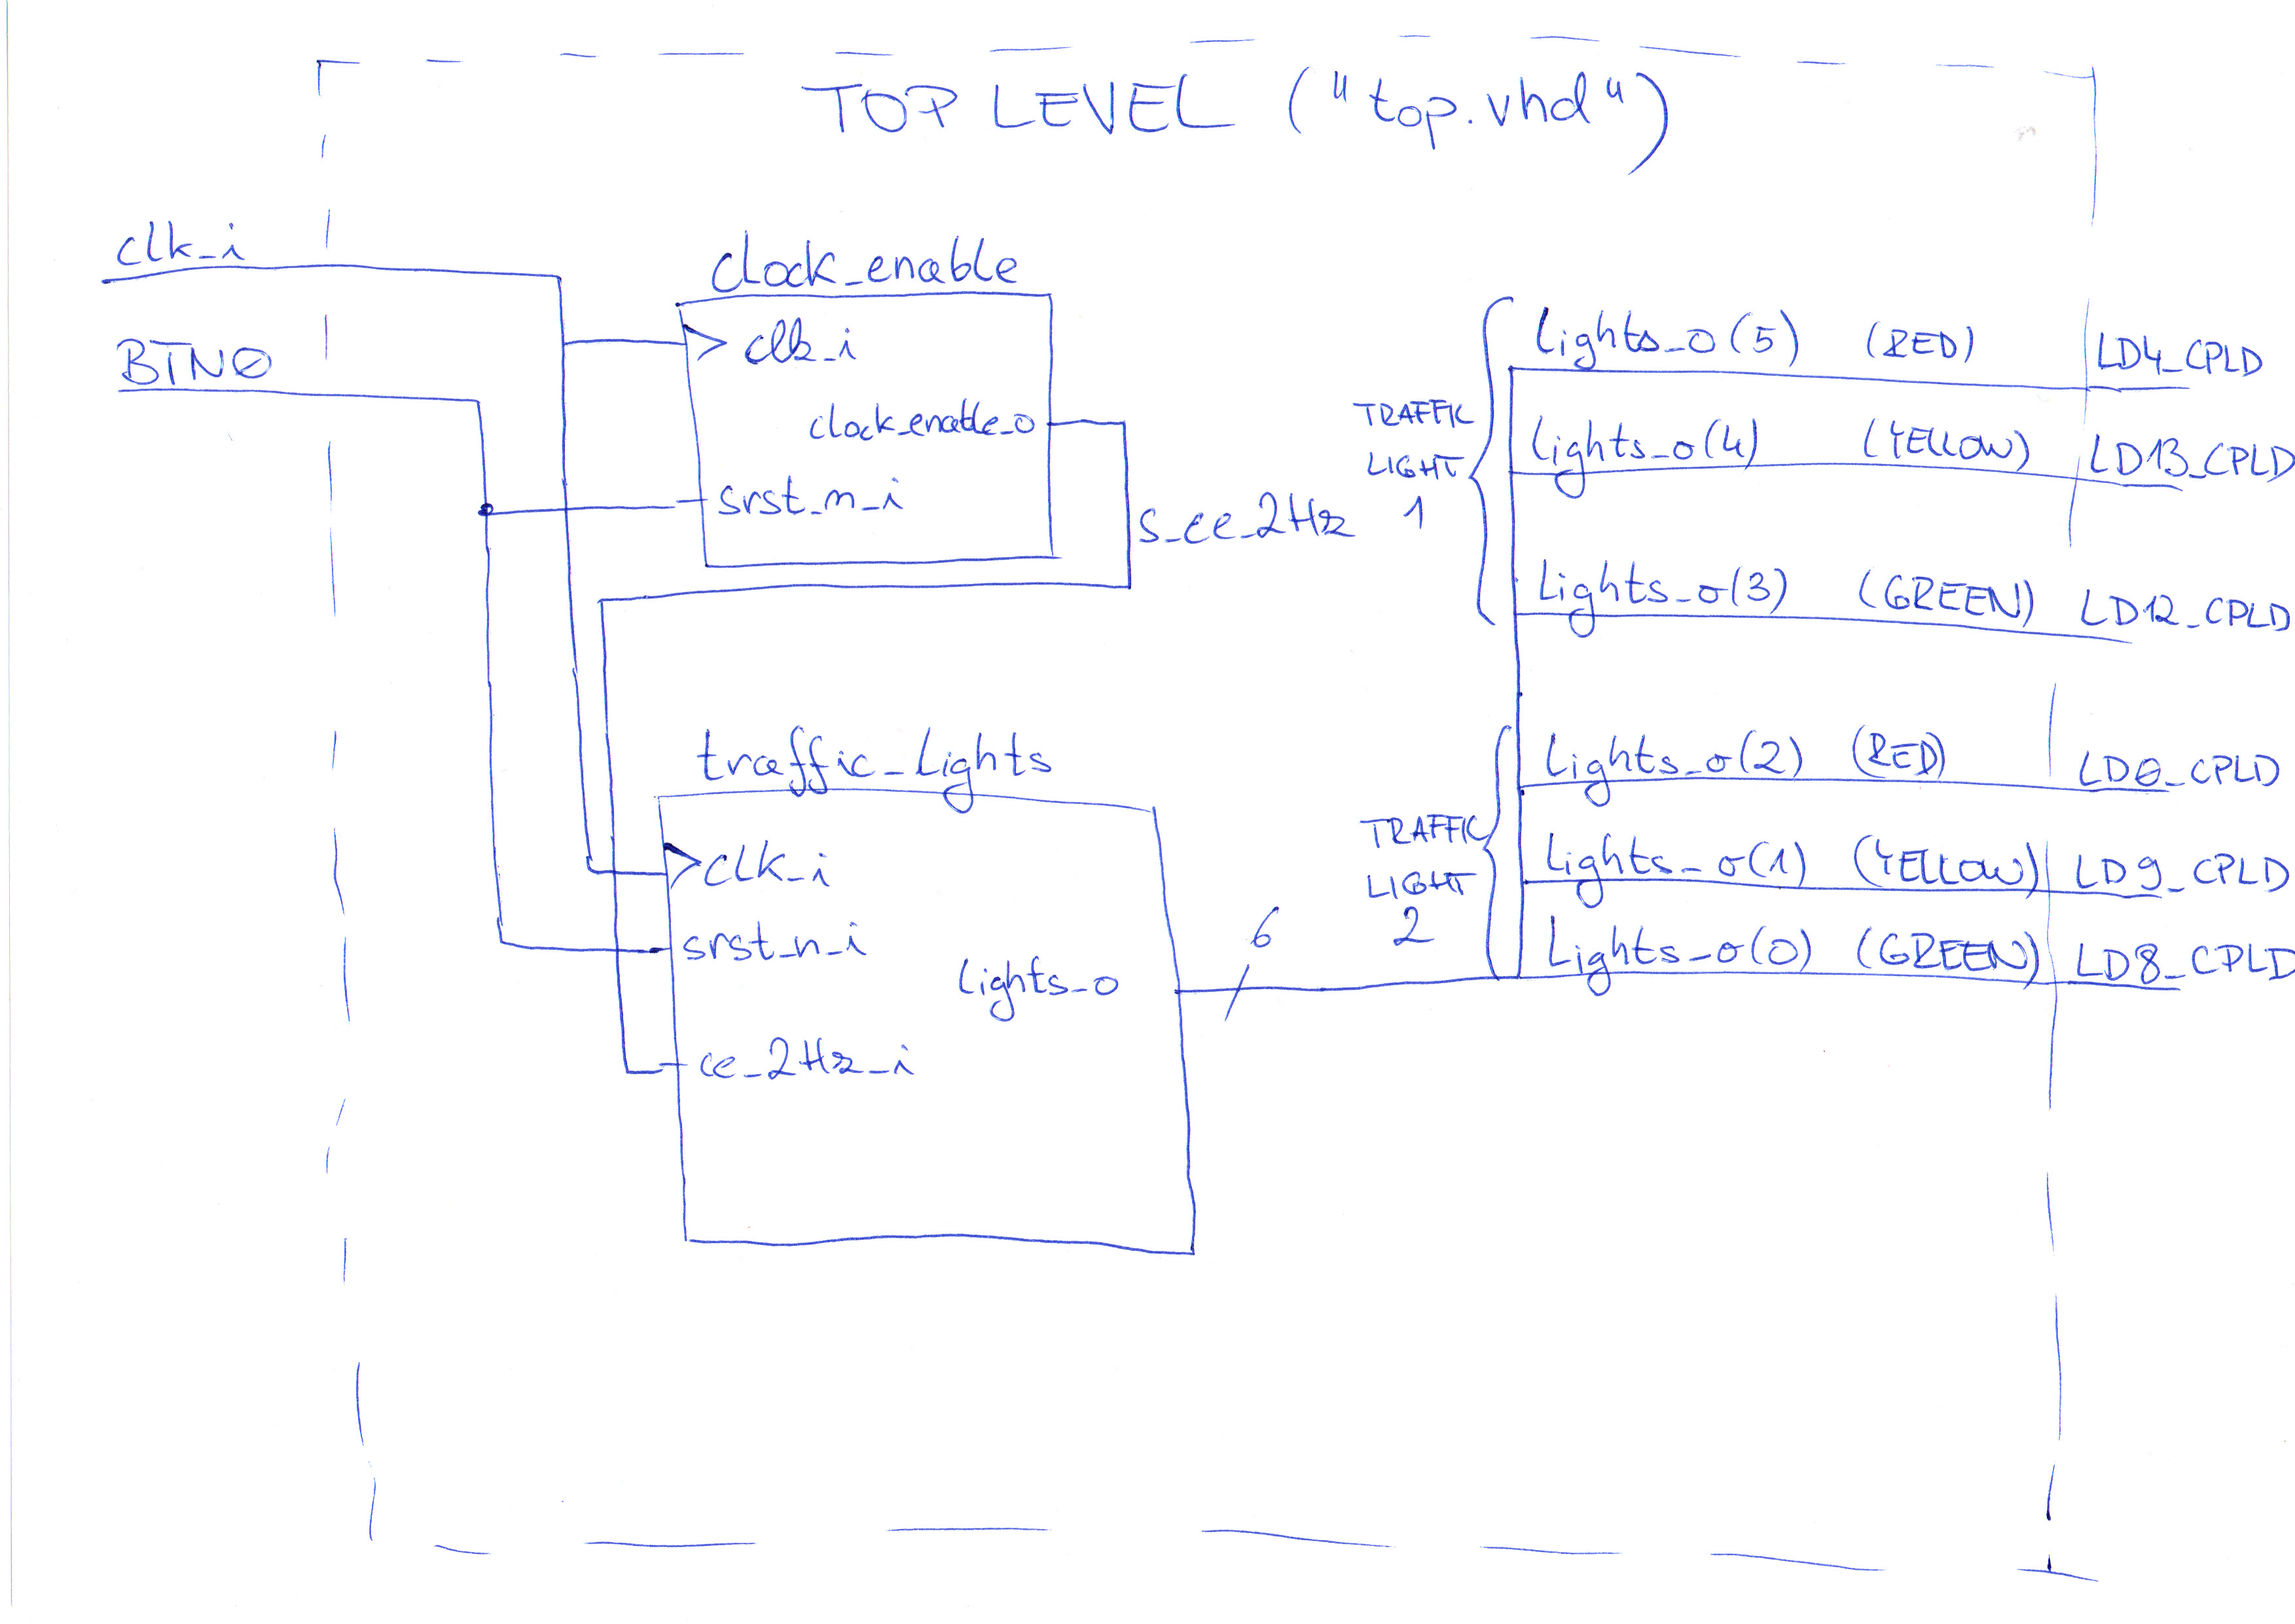 TOP LEVEL ("top.vhd")
clk_i
BTN0
clock_enable
clk_i
clock_enable_o
srst_n_i
s_ce_2Hz
traffic_lights
clk_i
srst_n_i
lights_o
ce_2Hz_i
6
TRAFFIC
LIGHT
1
lights_o(5) (RED) LD4_CPLD
lights_o(4) (YELLOW) LD13_CPLD
lights_o(3) (GREEN) LD12_CPLD
TRAFFIC
LIGHT
2
lights_o(2) (RED) LD0_CPLD
lights_o(1) (YELLOW) LD9_CPLD
lights_o(0) (GREEN) LD8_CPLD